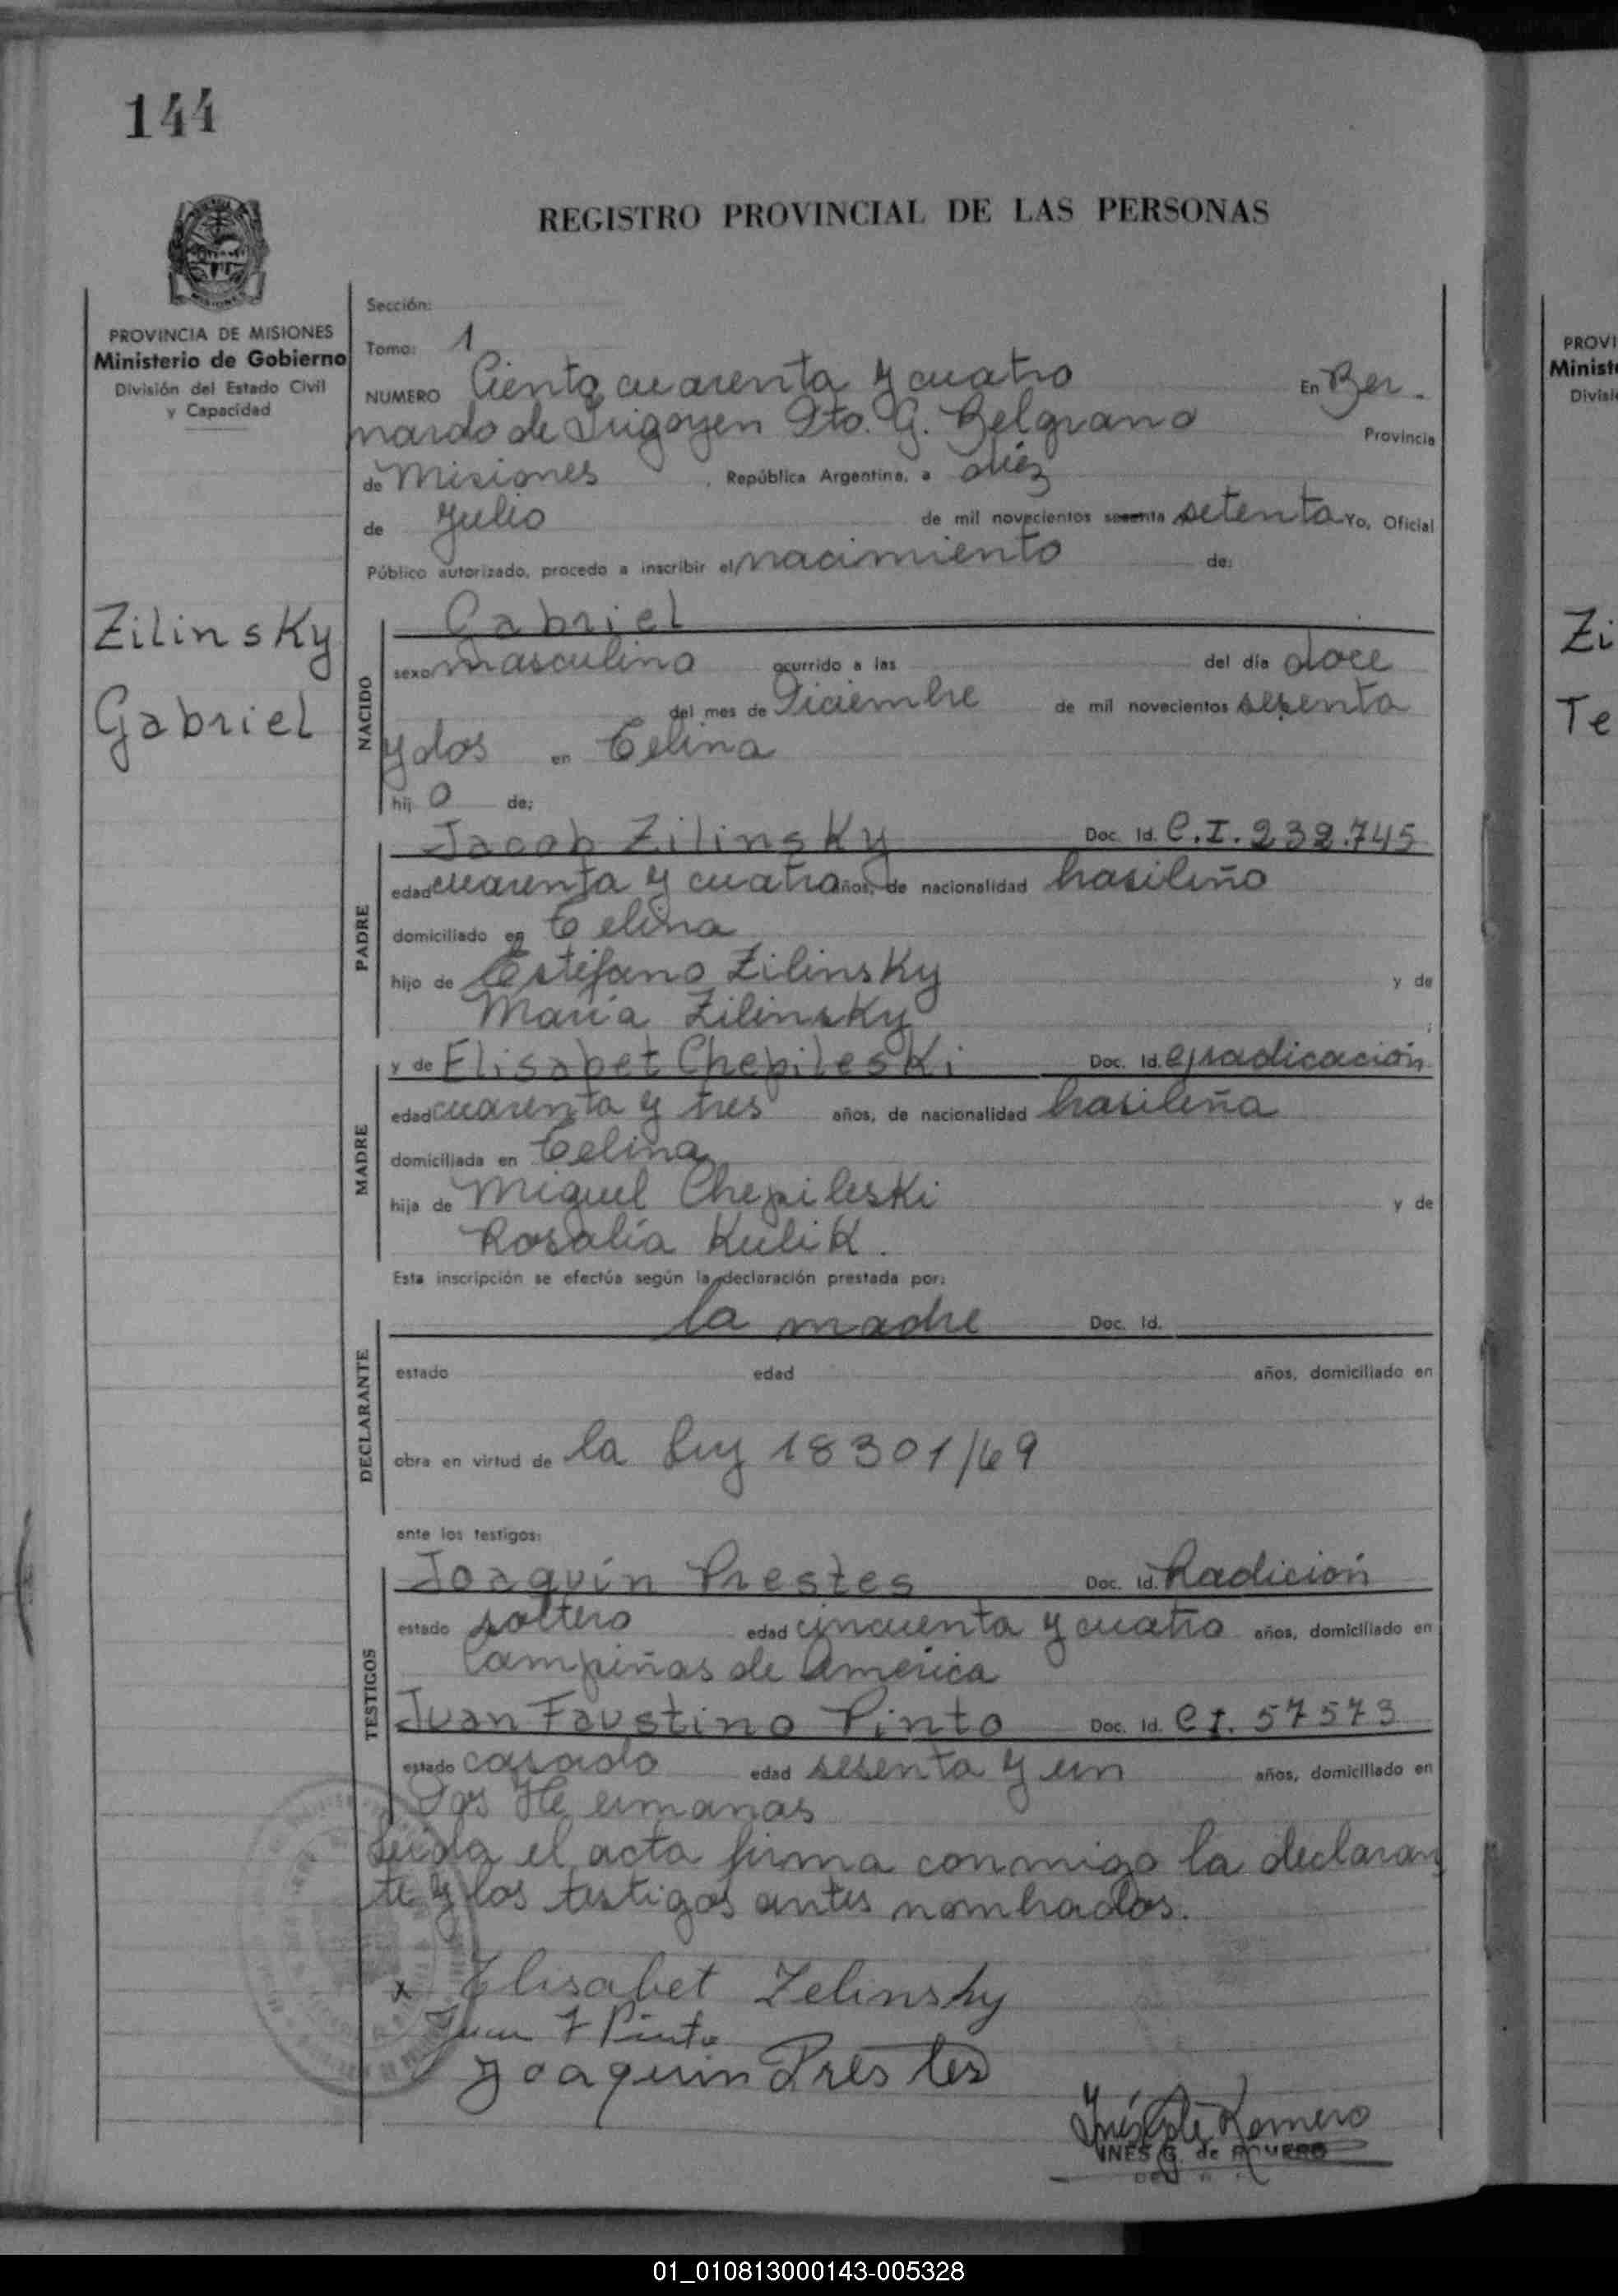 144
REGISTRO PROVINCIAL DE LAS PERSONAS
PROVINCIA DE MISIONES
Ministerio de Gobierno
División del Estado Civil
y Capacidad
Sección:
Tomo: 1
NUMERO Ciento cuarenta y cuatro En Ber-
nardo de Irigoyen Dto. G. Belgrano Provincia
de Misiones, República Argentina, a diéz
de Julio de mil novecientos sesenta setenta Yo, Oficial
Público autorizado, procedo a inscribir el nacimiento de:
Zilinsky
Gabriel
NACIDO
Gabriel
sexo masculino ocurrido a las del día doce
del mes de Diciembre de mil novecientos sesenta
y dos en Celina
hij o de:
PADRE
Jacob Zilinsky Doc. Id. C.I. 232.745
edad cuarenta y cuatro años, de nacionalidad brasileño
domiciliado en Celina
hijo de Estéfano Zilinsky y de
María Zilinsky ;
MADRE
y de Elisabet Chepileski Doc. Id. e/radicación
edad cuarenta y tres años, de nacionalidad brasileña
domiciliada en Celina
hija de Miguel Chepileski y de
Rosalía Kulik.
Esta inscripción se efectúa según la declaración prestada por:
DECLARANTE
la madre Doc. Id.
estado edad años, domiciliado en
obra en virtud de la Ley 18301/69
ante los testigos:
TESTIGOS
Joaquín Prestes Doc. Id. Radición
estado soltero edad cincuenta y cuatro años, domiciliado en
Campiñas de América
Juan Faustino Pinto Doc. Id. C.I. 57573
estado casado edad sesenta y un años, domiciliado en
Dos Hermanas
Leída el acta firma conmigo la declaran
te y los testigos antes nombrados.
x Elisabet Zelinsky
Juan F Pinto
Joaquin Prestes
Inés G de Romero
INES G. de ROMERO
PROVI
Ministe
Divisió
Zi
Te
01_010813000143-005328